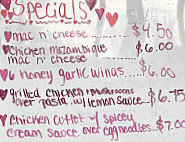 Specials
mac n' cheese ........ $4.50
Chicken mozambique $6.00
mac n' cheese
6 honey garlic wings.....$6.00
grilled chicken + mushrooms
over pasta w/ lemon sauce..$6.75
Chicken cutlet w/ spicey
cream sauce over egg noodles...$7.00